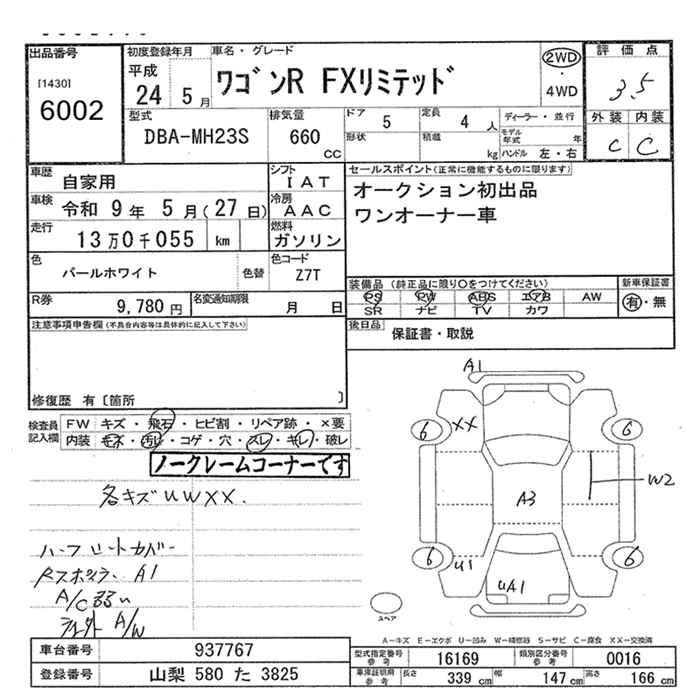 出品番号
[1430]
6002
初度登録年月
平成
24 5月
車名・グレード
ワゴンR FXリミテッド
2WD
・
4WD
評価点
3.5
外装 内装
C C
型式
DBA-MH23S
排気量
660
cc
ドア
5
定員
4 人
形状
積載
kg
ディーラー・並行
モデル年式 年
ハンドル 左・右
車歴
自家用
シフト
IAT
車検
令和 9年 5月(27日)
冷房
AAC
走行
13万0千055 km
燃料
ガソリン
色
パールホワイト
色替
色コード
Z7T
R券
9,780円
名変通知期限
月 日
セールスポイント(正常に機能するものに限ります)
オークション初出品
ワンオーナー車
装備品(純正品に限り○をつけてください)
PS PW ABS エアB AW
SR ナビ TV カワ
新車保証書
有・無
後日品
保証書・取説
注意事項申告欄(不具合内容等は具体的に記入して下さい)
修復歴 有〔箇所 〕
検査員記入欄
FW キズ・飛石・ヒビ割・リペア跡・×要
内装 キズ・汚レ・コゲ・穴・スレ・キレ・破レ
ノークレームコーナーです
各キズUWXX.
ハーフシートカバー
Rスポイラー A1
A/C弱い
社外 A/W
A1
XX
6
6
W2
A3
6
6
U1
UA1
スペア
A-キズ E-エクボ U-凹み W-補修跡 S-サビ C-腐食 XX-交換済
車台番号
937767
登録番号
山梨 580 た 3825
型式指定番号
参考
16169
類別区分番号
参考
0016
車庫証明用
参考
長さ
339 cm
幅
147 cm
高さ
166 cm